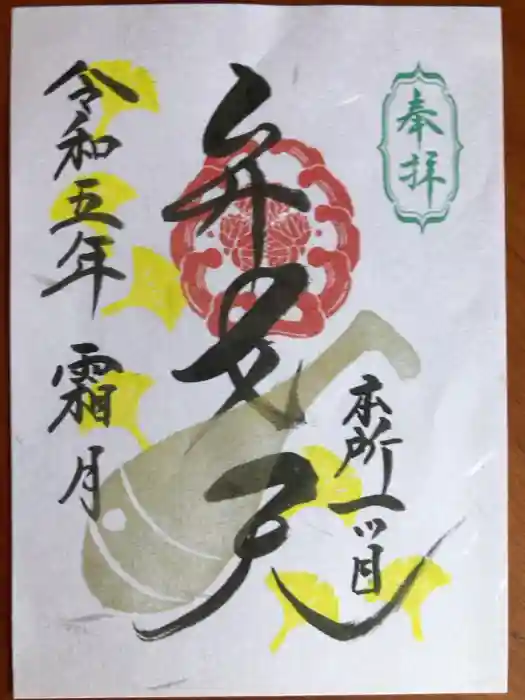 奉拝
本所一ツ目
弁才天
令和五年 霜月